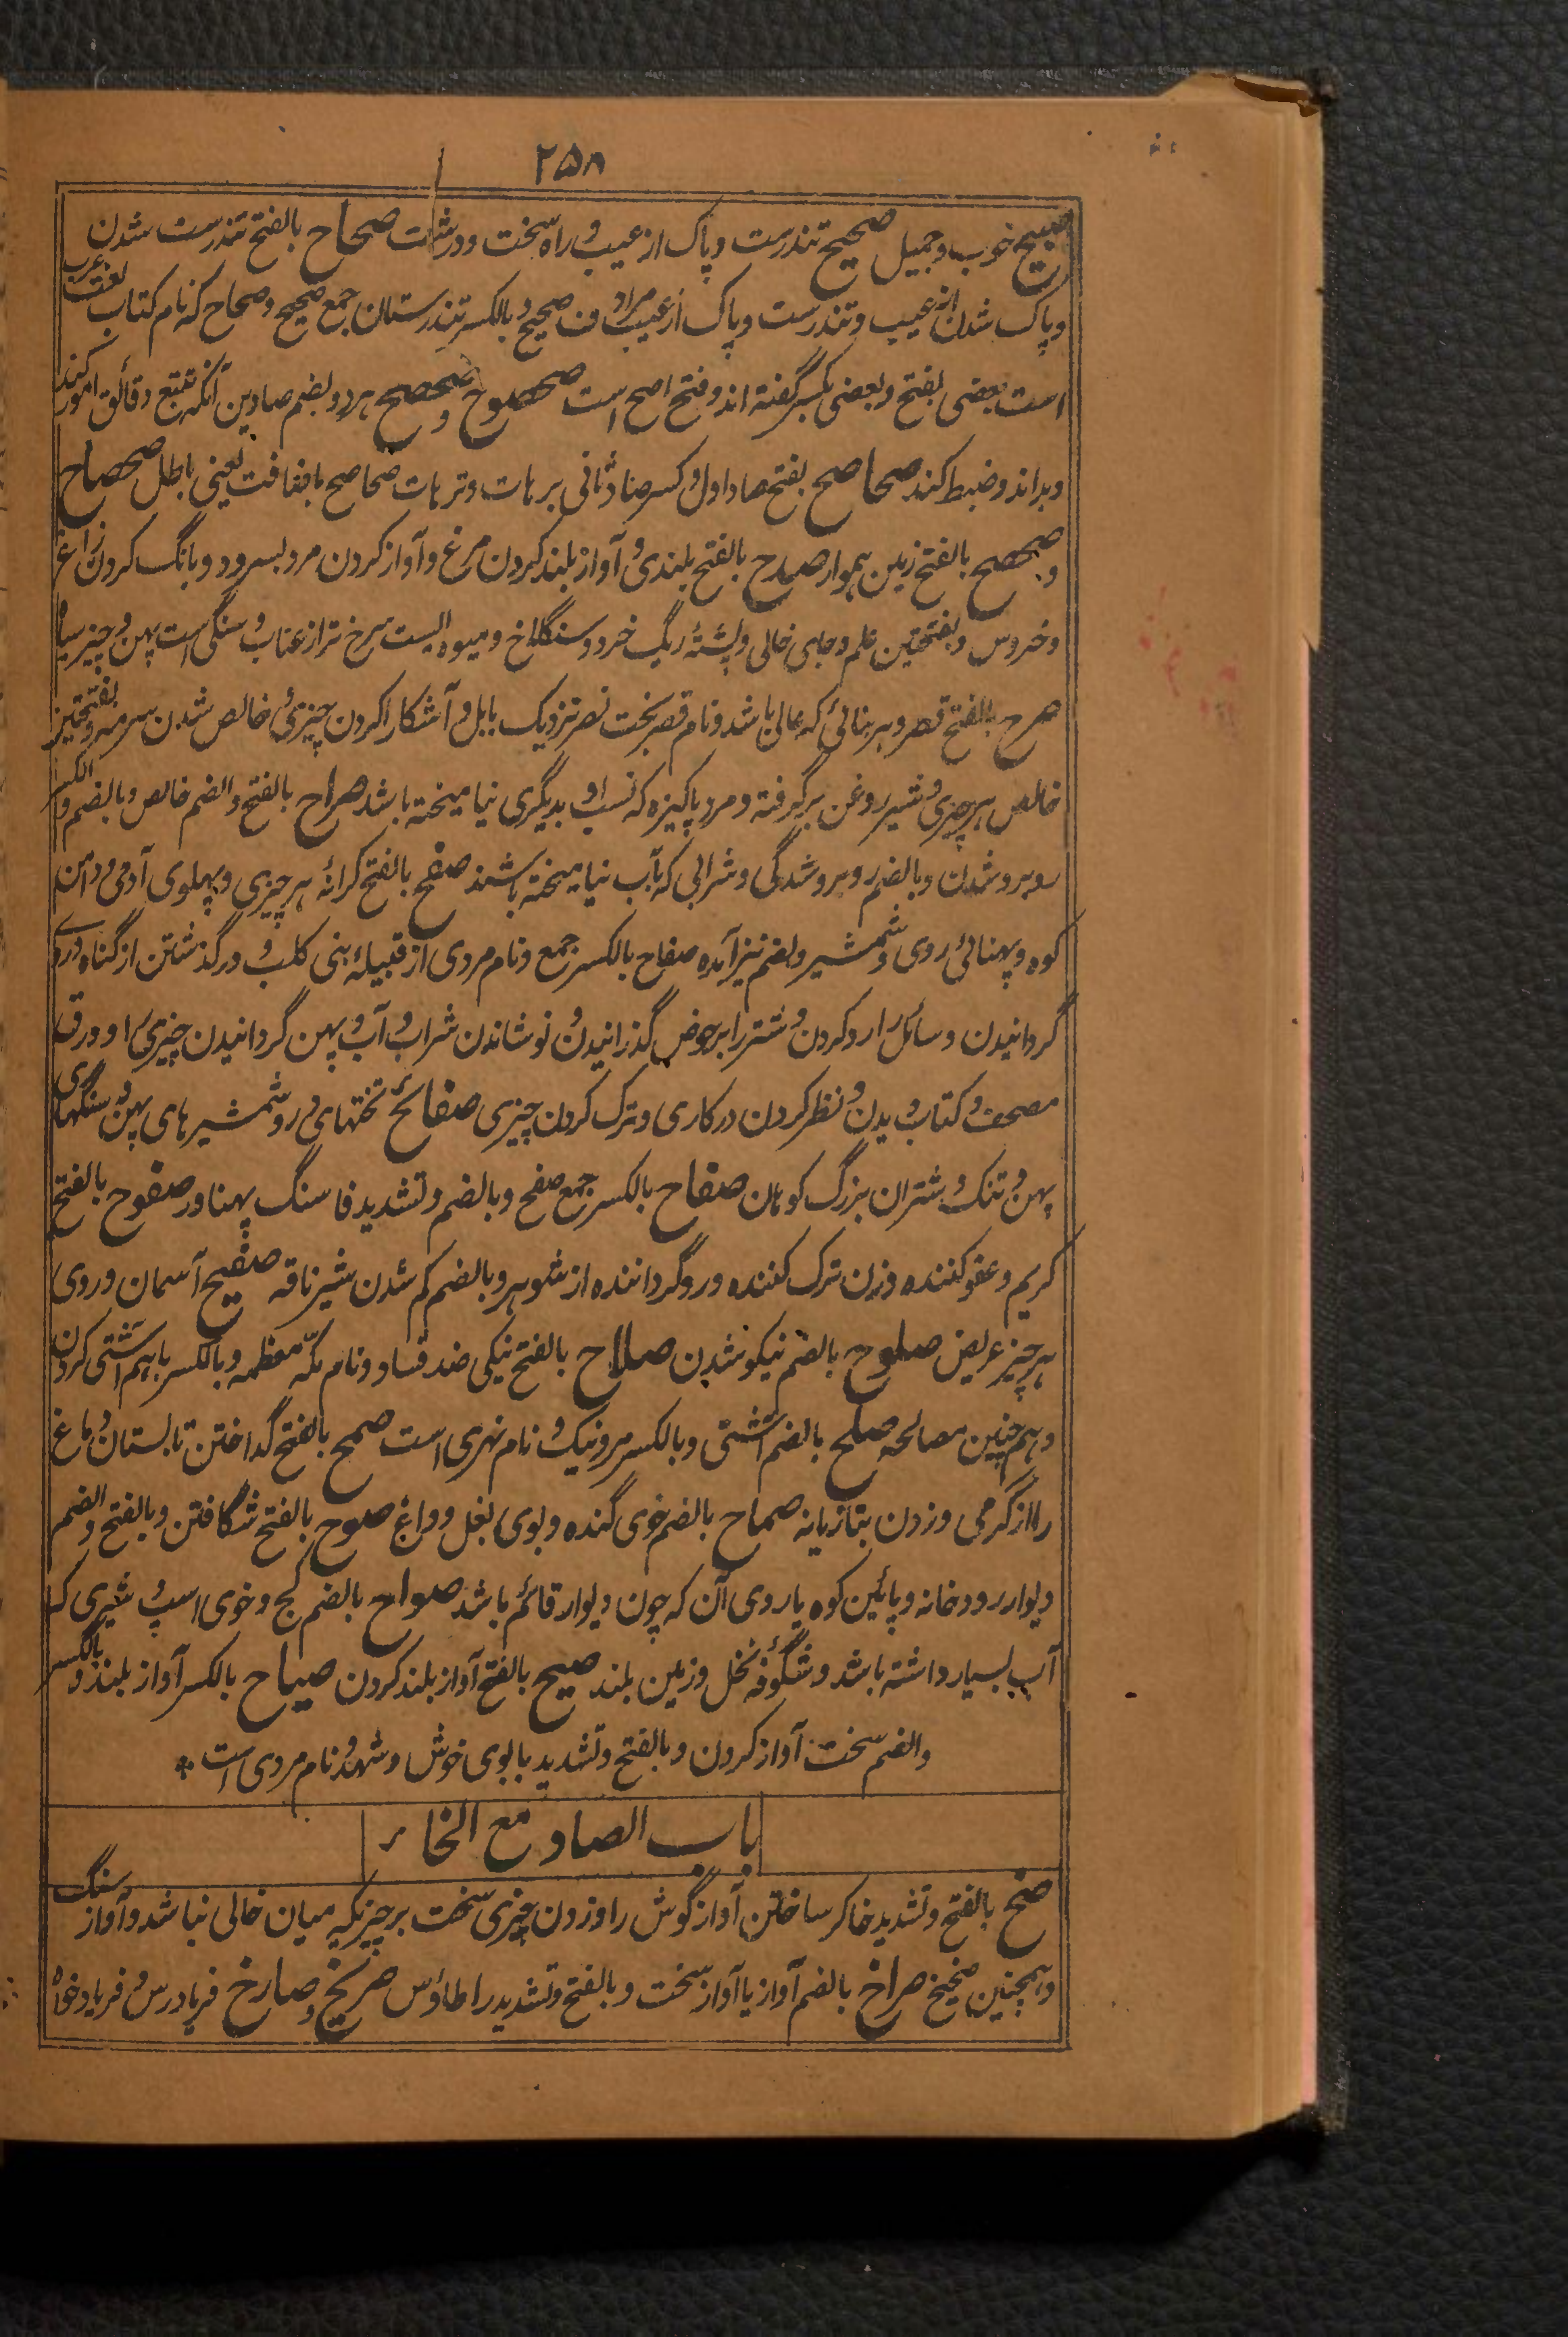 ۲۵۸
صبیح خوب و جمیل صحیح تندرست و پاک از عیب و راه سخت و درشت صحاح بالفتح تندرست شدن
و پاک شدن از عیب و تندرست و پاک از عیب مراد ف صحیح و بالکسر تندرستان جمع صحیح و صحاح که نام کتاب لغت عرب
است بعضی بفتح و بعضی بکسر گفته اند و فتح اصح است صحصوح و صحصح هر دو بضم صادین آنکه تتبع دقائق امور کند
و بداند و ضبط کند صحاصح بفتح صاد اول و کسر صاد ثانی برهات و ترهات صحاصح باضافت یعنی باطل صحصاح
و صحصح بالفتح زمین هموار صدح بالفتح بلندی و آواز بلند کردن مرغ و آواز کردن مرد بسرود و بانگ کردن زاغ
و خروس و بفتحتین علم و جای خالی و پشتهٔ ریگ خرد و سنگلاخ و میوه ایست سرخ تر از عناب و سنگی است پهن و چیز سیاه
صرح بالفتح قصر و هر بنائی که عالی باشد و نام قصر بخت نصر نزدیک بابل و آشکارا کردن چیزی و خالص شدن سرمه و بفتحتین
خالص هر چیزی و شیر روغن برگرفته و مرد پاکیزه که نسب او بدیگری نیامیخته باشد صراح بالفتح و الضم خالص و بالضم و الکسر
روبرو شدن و بالضم روبرو شدگی و شرابی که بآب نیامیخته باشند صفح بالفتح کرانهٔ هر چیزی و پهلوی آدمی و دامن
کوه و پهنائی روی و شمشیر و بضم نیز آمده صفاح بالکسر جمع و نام مردی از قبیلهٔ بنی کلب و درگذشتن از گناه و روی
گردانیدن و سائل را رد کردن و شتر را بر حوض گذرانیدن و نوشاندن شراب و آب و پهن گردانیدن چیزی را و ورق
مصحف و کتاب دیدن و نظر کردن در کاری و ترک کردن چیزی صفائح تختهای در و شمشیرهای پهن و سنگهای
پهن و تنک و شتران بزرگ کوهان صفاح بالکسر جمع صفح و بالضم و تشدید فا سنگ پهناور صفوح بالفتح
کریم و عفو کننده و زن ترک کننده و روگرداننده از شوهر و بالضم کم شدن شیر ناقه صفیح آسمان و روی
هر چیز عریض صلوح بالضم نیکو شدن صلاح بالفتح نیکی ضد فساد و نام مکّه معظمه و بالکسر باهم آشتی کردن
و هم چنین مصالحه صلح بالضم آشتی و بالکسر مرد نیک و نام نهری است صمح بالفتح گداختن تابستان دماغ
را از گرمی و زدن بتازیانه صماح بالضم خوی گنده و بوی بغل و داغ صوح بالفتح شگافتن و بالفتح و الضم
دیوار رودخانه و پائین کوه یا روی آن که چون دیوار قائم باشد صواح بالضم گچ و خوی اسپ و شیری که
آب بسیار داشته باشد و شگوفهٔ نخل و زمین بلند صیح بالفتح آواز بلند کردن صیاح بالکسر آواز بلند و بالکسر
و الضم سخت آواز کردن و بالفتح و تشدید یا بوی خوش و شهد و نام مردی است *
باب الصاد مع الخاء
صخ بالفتح و تشدید خا کر ساختن آواز گوش را و زدن چیزی سخت بر چیزیکه میان خالی نباشد و آواز سنگ
و همچنین صخیخ صراخ بالضم آواز یا آواز سخت و بالفتح و تشدید را طاؤس صریخ و صارخ فریادرس و فریادخواه